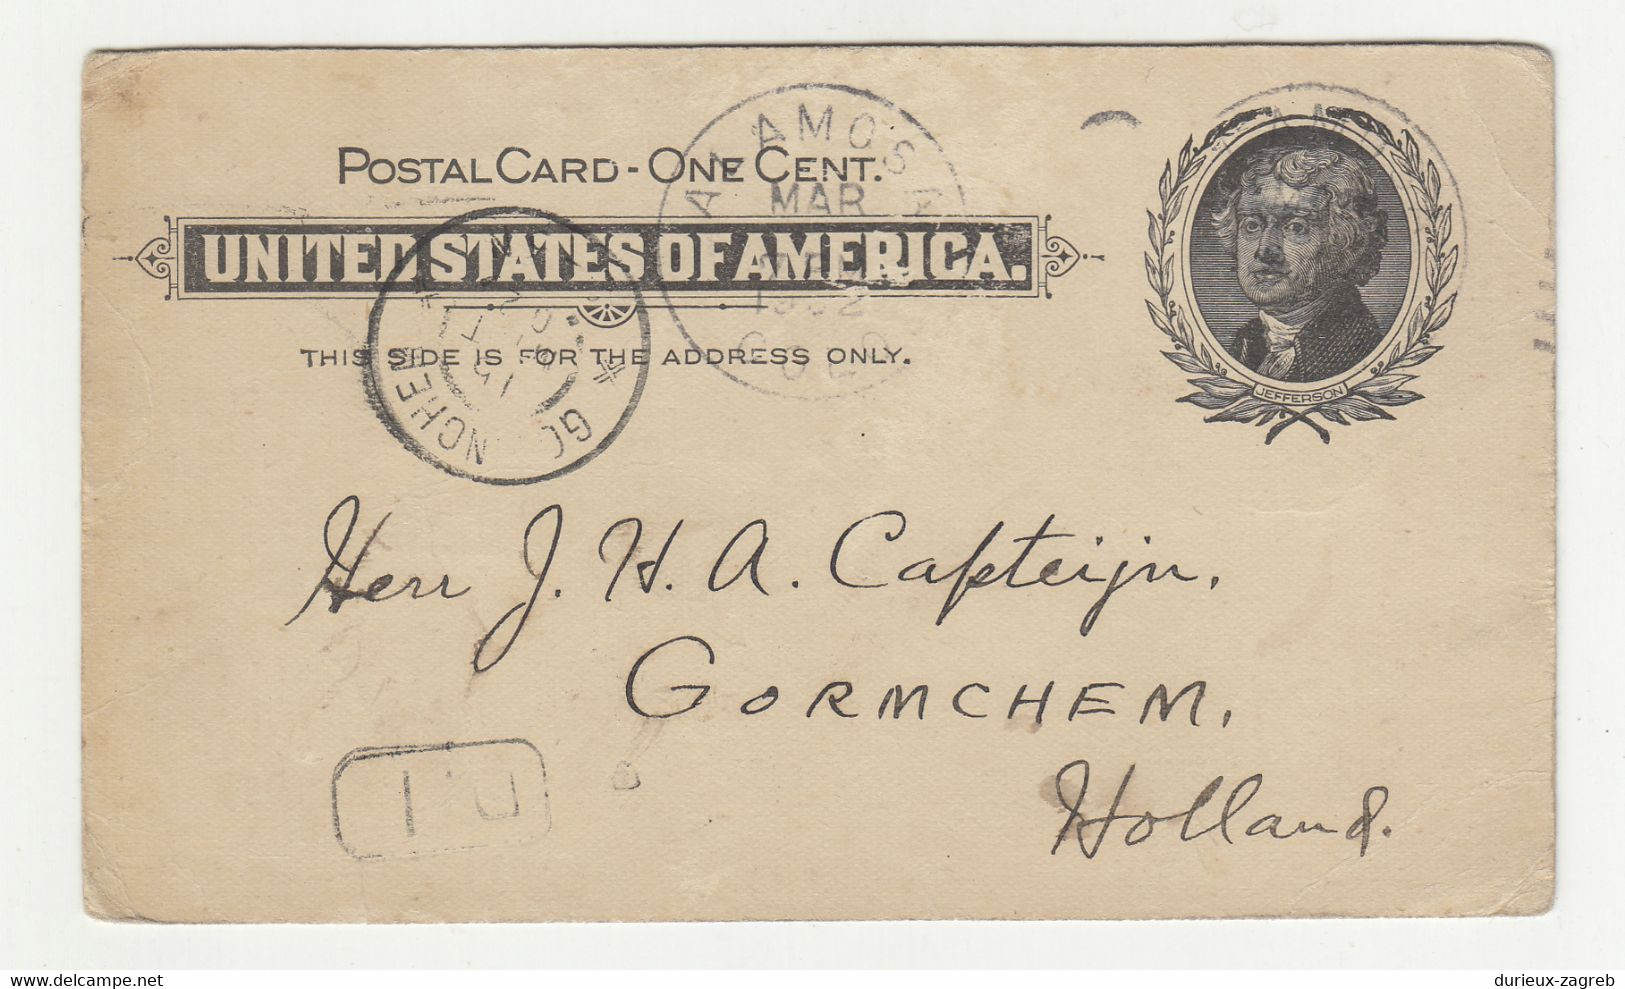 POSTAL CARD - ONE CENT.
UNITED STATES OF AMERICA.
THIS SIDE IS FOR THE ADDRESS ONLY.
JEFFERSON
ALAMOSA
MAR
1902
COLO
Herr J. H. A. Capteijn.
GORMCHEM,
Holland.
durieux-zagreb
www.delcampe.net